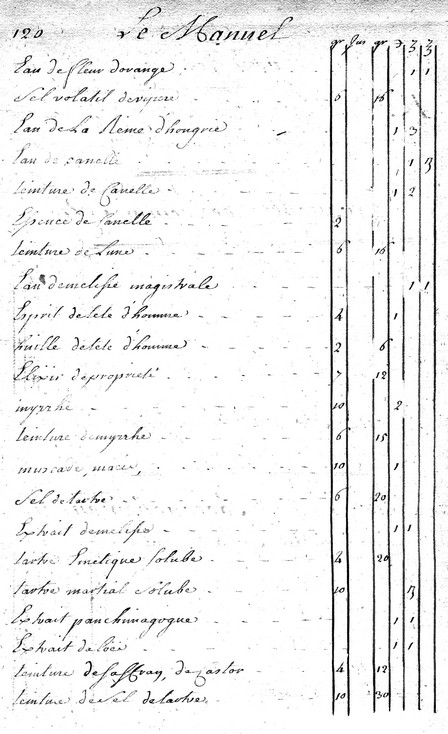 120 Le Manuel
gr jus gr ʒ ʒ ʒ
Eau de fleur dorange 1 1
Sel volatil devipere 6 16
Eau de La Reine d'hongrie 1 3
Eau de canelle 1 ʒ
teinture de Canelle 1 2
Essence de Canelle 2
teinture de Lune 6 16
Eau demelisse magistrale 1 1
Esprit detete d'homme 4 1
huille detete d'homme 2 6
Elixir depropriete 7 12
myrrhe 10 2
teinture demyrrhe 6 15
muscade, macis, 10 1
Sel detartre 6 20
Extrait demelisse 1 1
tartre Emetique Solube 4 20
tartre martial Solube 10 ʒ
Extrait panchimagogue 1 1
Extrait daloës 1 1
teinture desaffran, decastor 4 12
teinture de Sel detartre 10 30